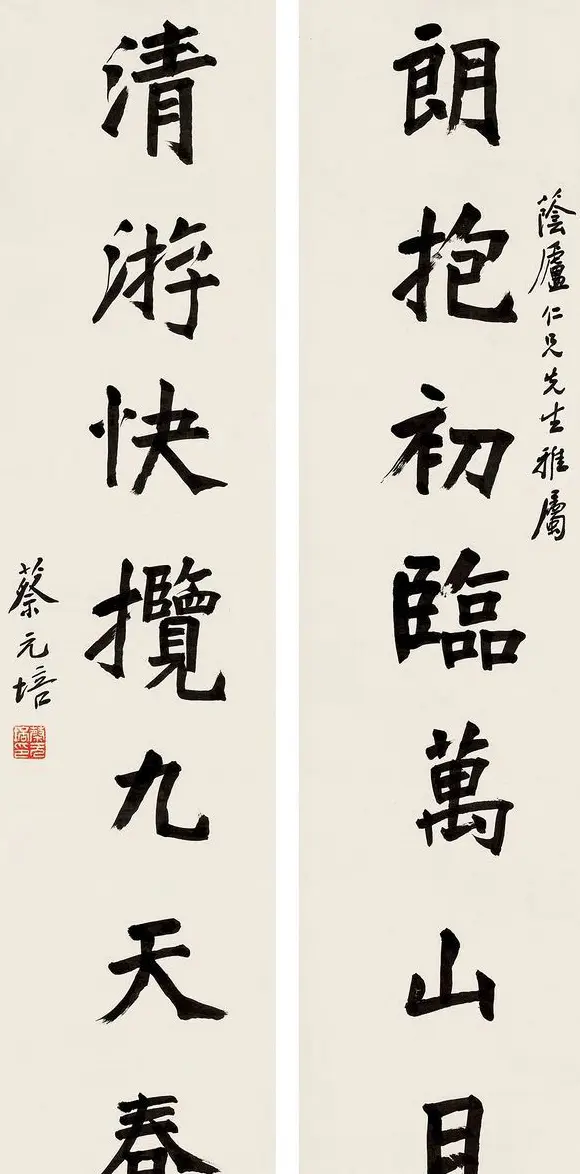 朗抱初臨萬山月
蔭廬仁兄先生雅屬
清游快攬九天春
蔡元培